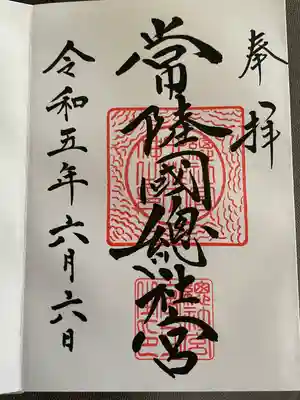 奉拝
常陸國總社宮
令和五年六月六日